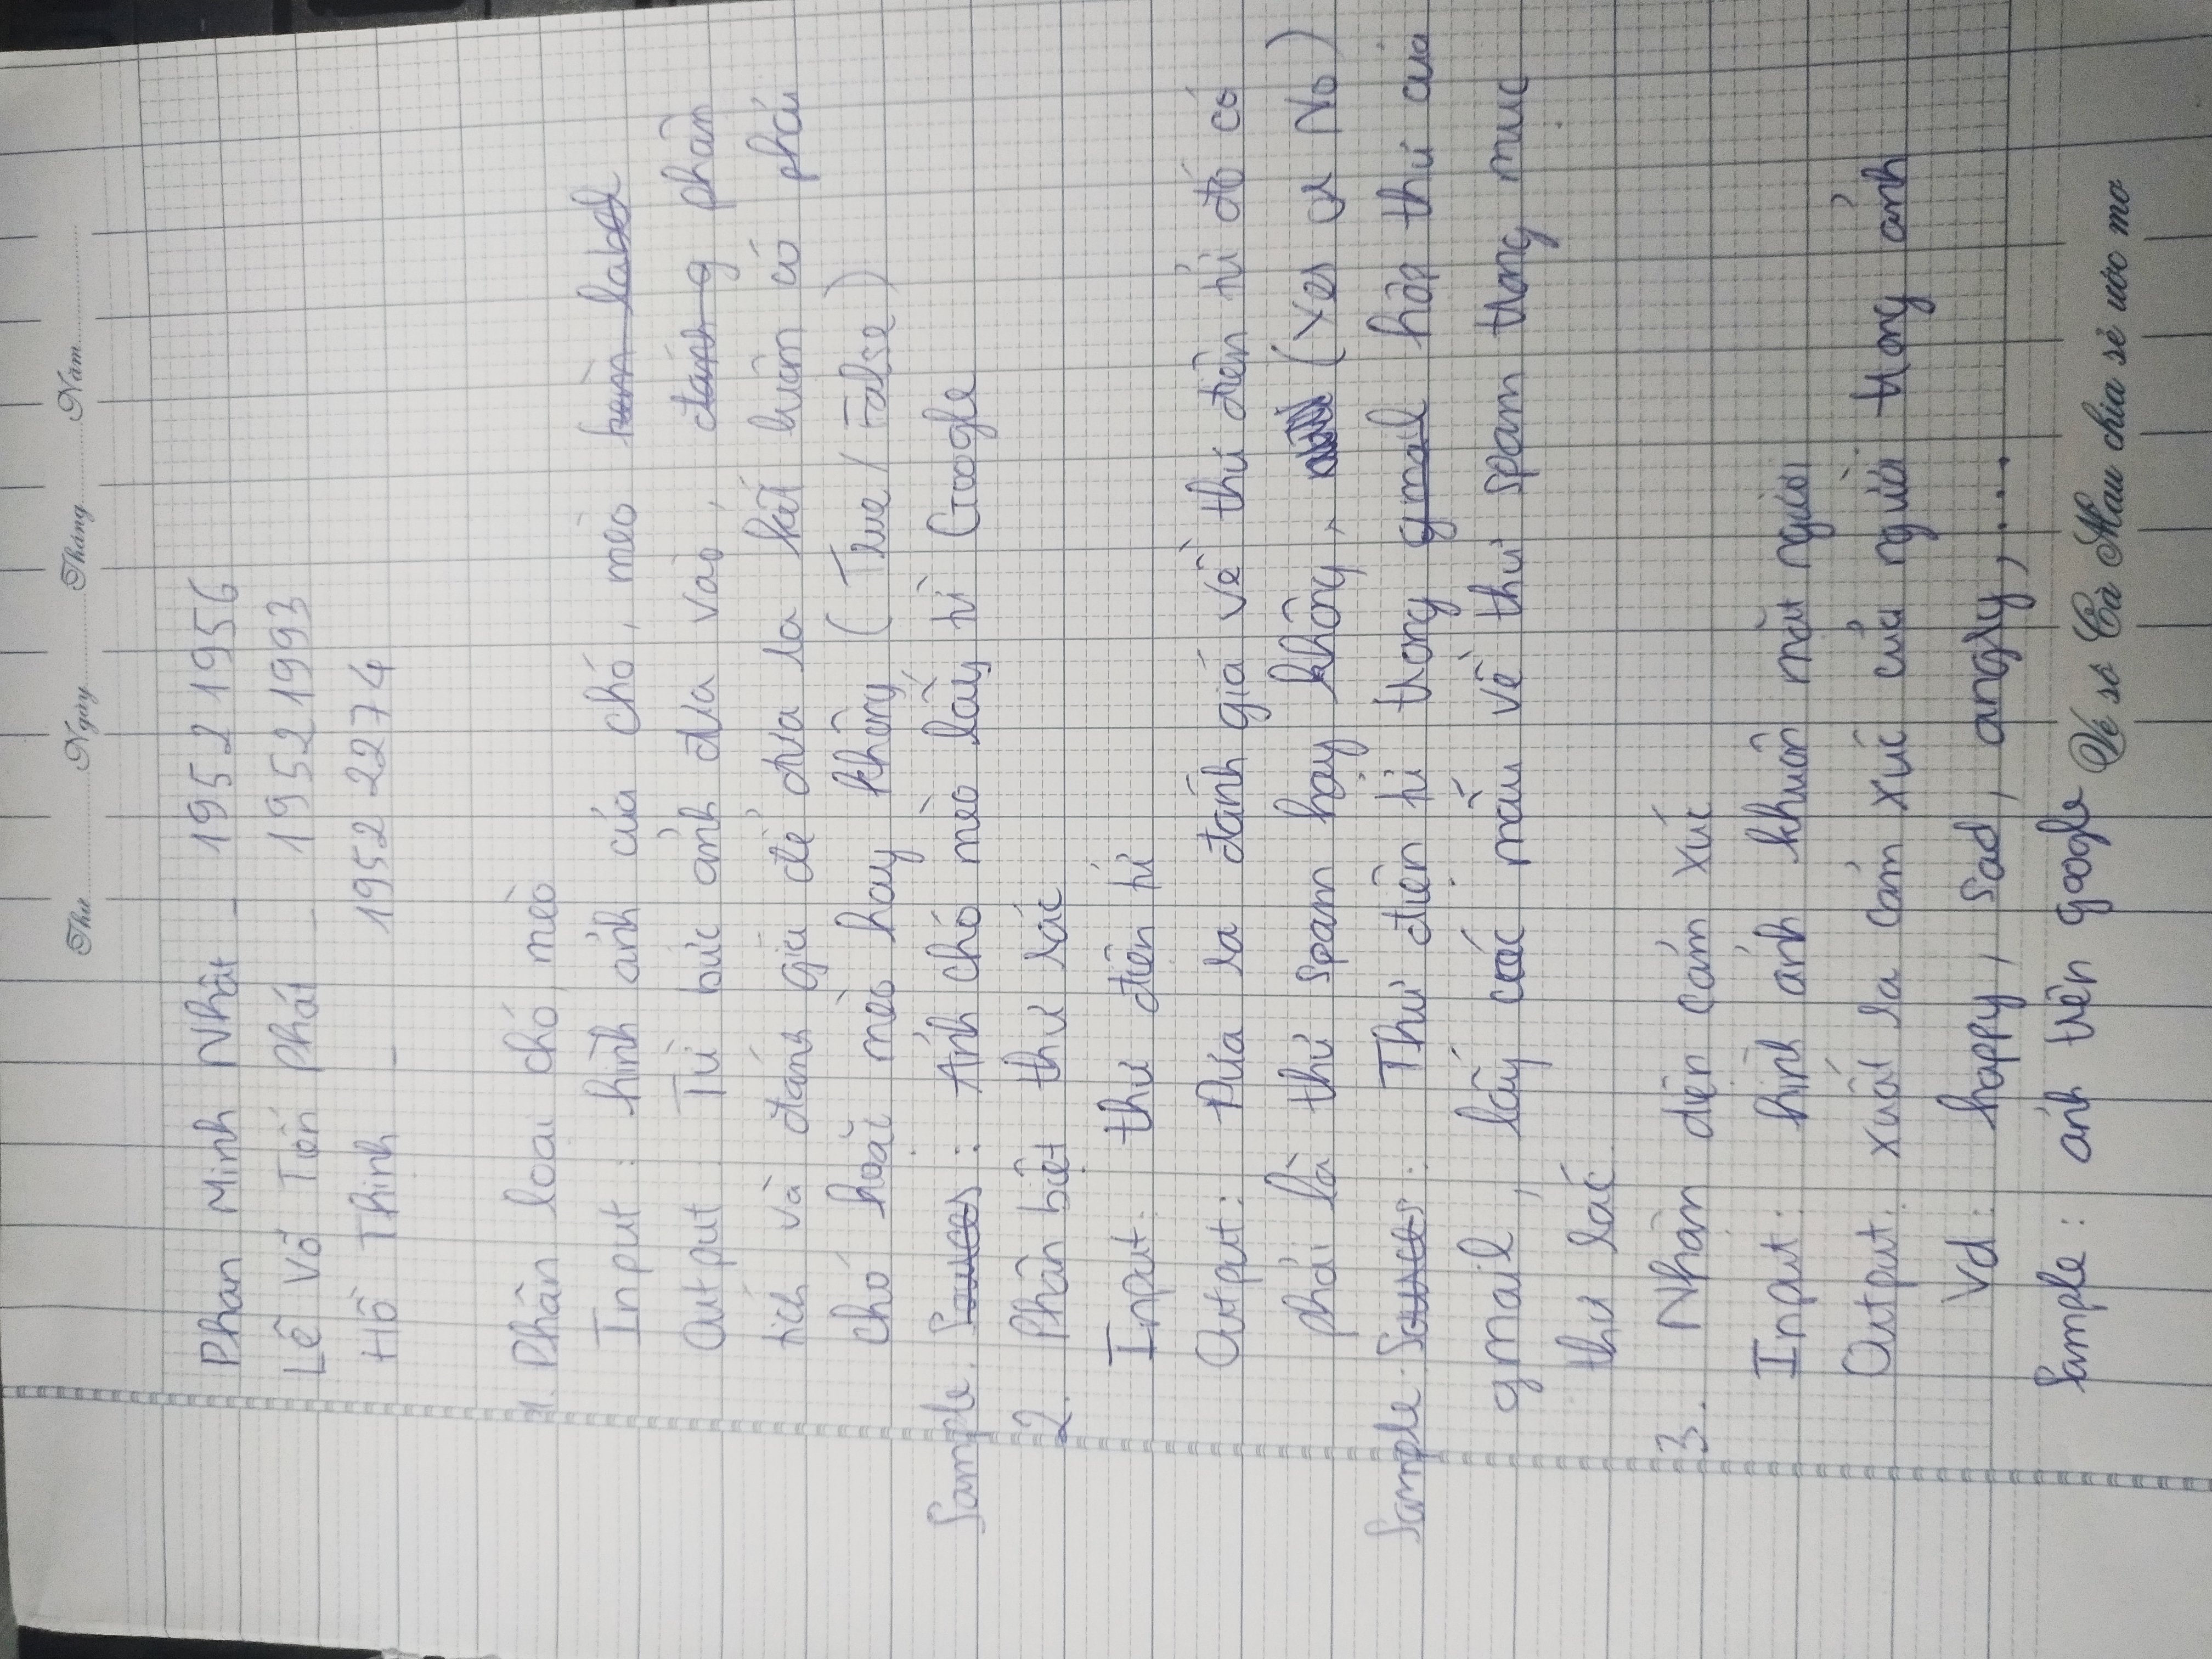 Thứ Ngày Tháng Năm
Phan Minh Nhật - 19521956
Lê Võ Tiến Phát - 19521993
Hồ Thịnh - 19522274
1. Phân loại chó mèo
Input : hình ảnh của chó, mèo kèm label
Output : Từ bức ảnh đưa vào, đánh g phân
tích và đánh giá để đưa ra kết luận có phải
chó hoặc mèo hay không ( True / False )
Sample. Sources : Ảnh chó mèo lấy từ Google
2. Phân biệt thư rác
Input : thư điện tử
Output : Đưa ra đánh giá về thư điện tử đó có
phải là thư spam hay không, (Yes or No)
Sample : Sources : Thư điện tử trong gmail hộp thư của
gmail, lấy các mẫu về thư spam trong mục
thư rác.
3. Nhận diện cảm xúc
Input : hình ảnh khuôn mặt người
Output : xuất ra cảm xúc của người trong ảnh
Vd : happy, sad, angry, ...
Sample : ảnh trên google
Vé số Cà Mau chia sẻ ước mơ